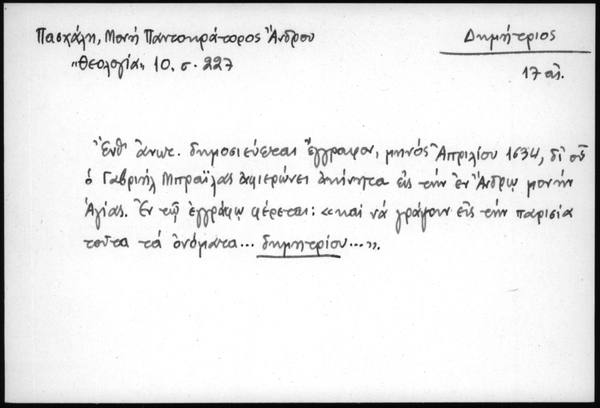 Πασχάλη, Μονή Παντοκράτορος Ἄνδρου
Δημήτριος
"Θεολογία" 10. σ. 227
17 αἰ.
Ἔνθ' ἀνωτ. δημοσιεύεται ἔγγραφον, μηνός Ἀπριλίου 1634, δι' οὗ
ὁ Γαβριήλ Μπραΐλας ἀφιερώνει ἀκίνητα εἰς τήν ἐν Ἄνδρῳ μονήν
Ἁγίας. Ἐν τῷ ἐγγράφῳ φέρεται: «καί νά γράφουν εἰς τήν παρισία
τοῦτα τά ὀνόματα... δημητρίου...».